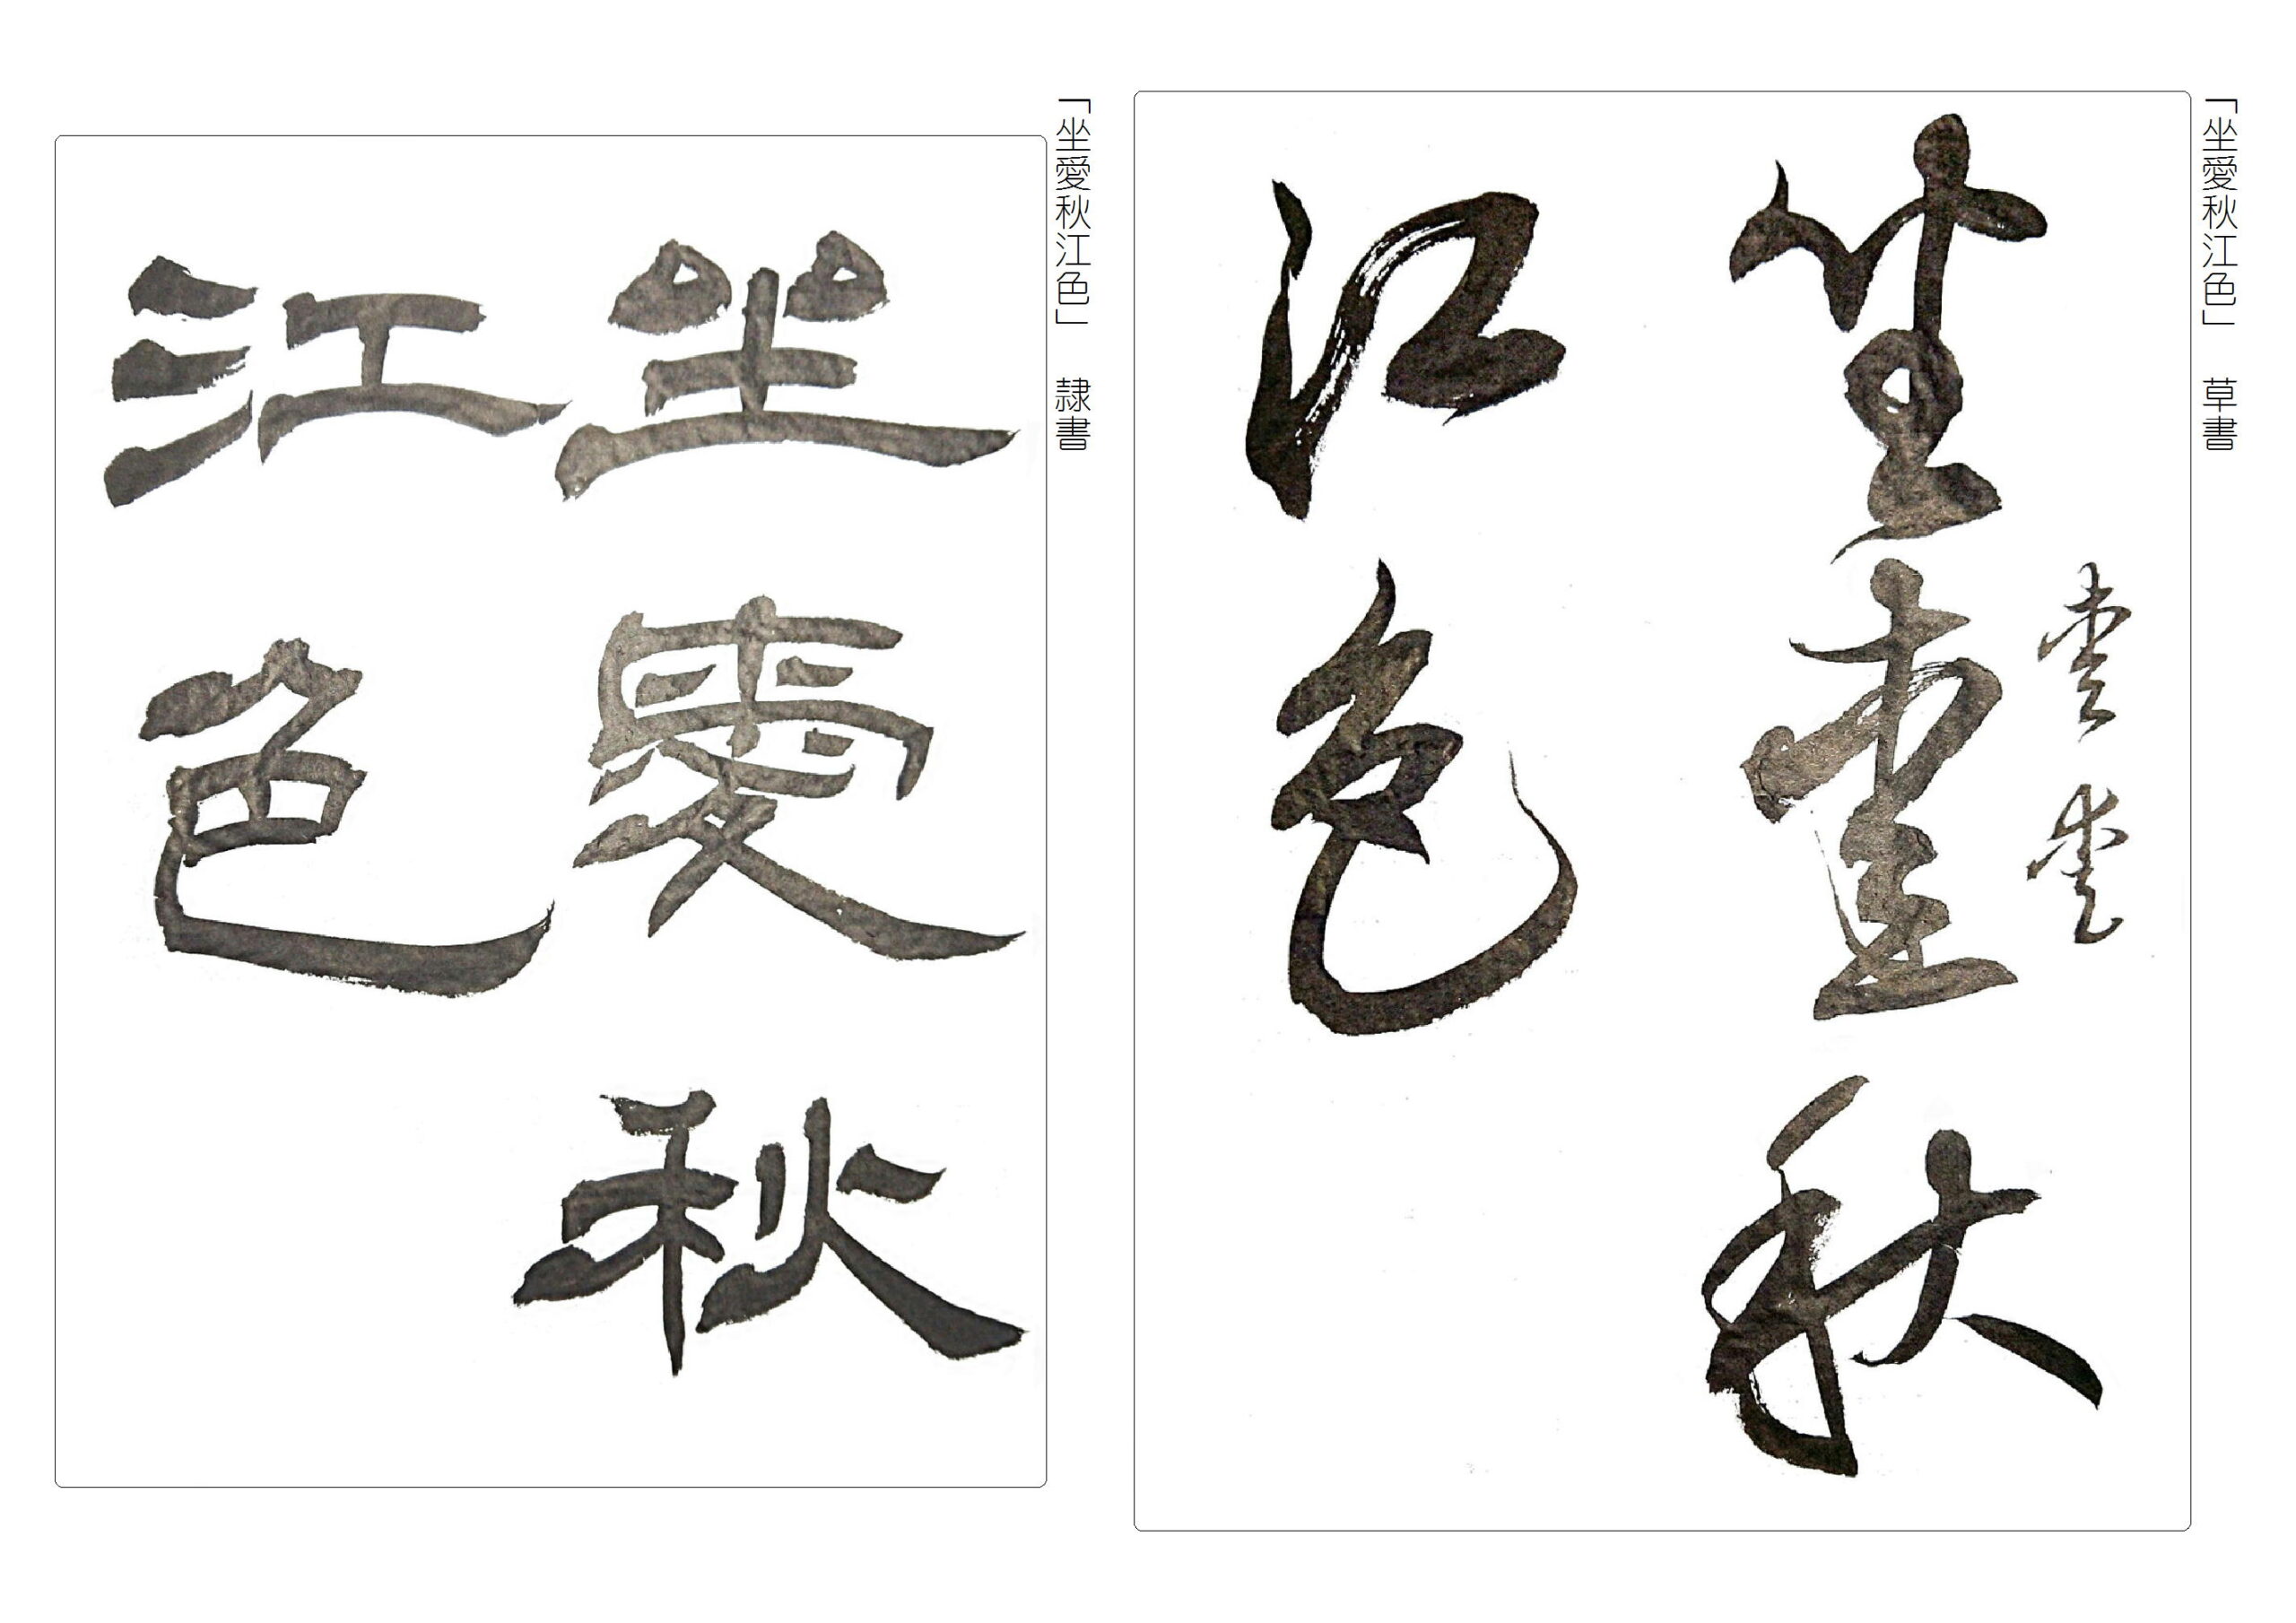 「坐愛秋江色」 草書
坐愛秋
江色
「坐愛秋江色」 隷書
坐愛秋
江色